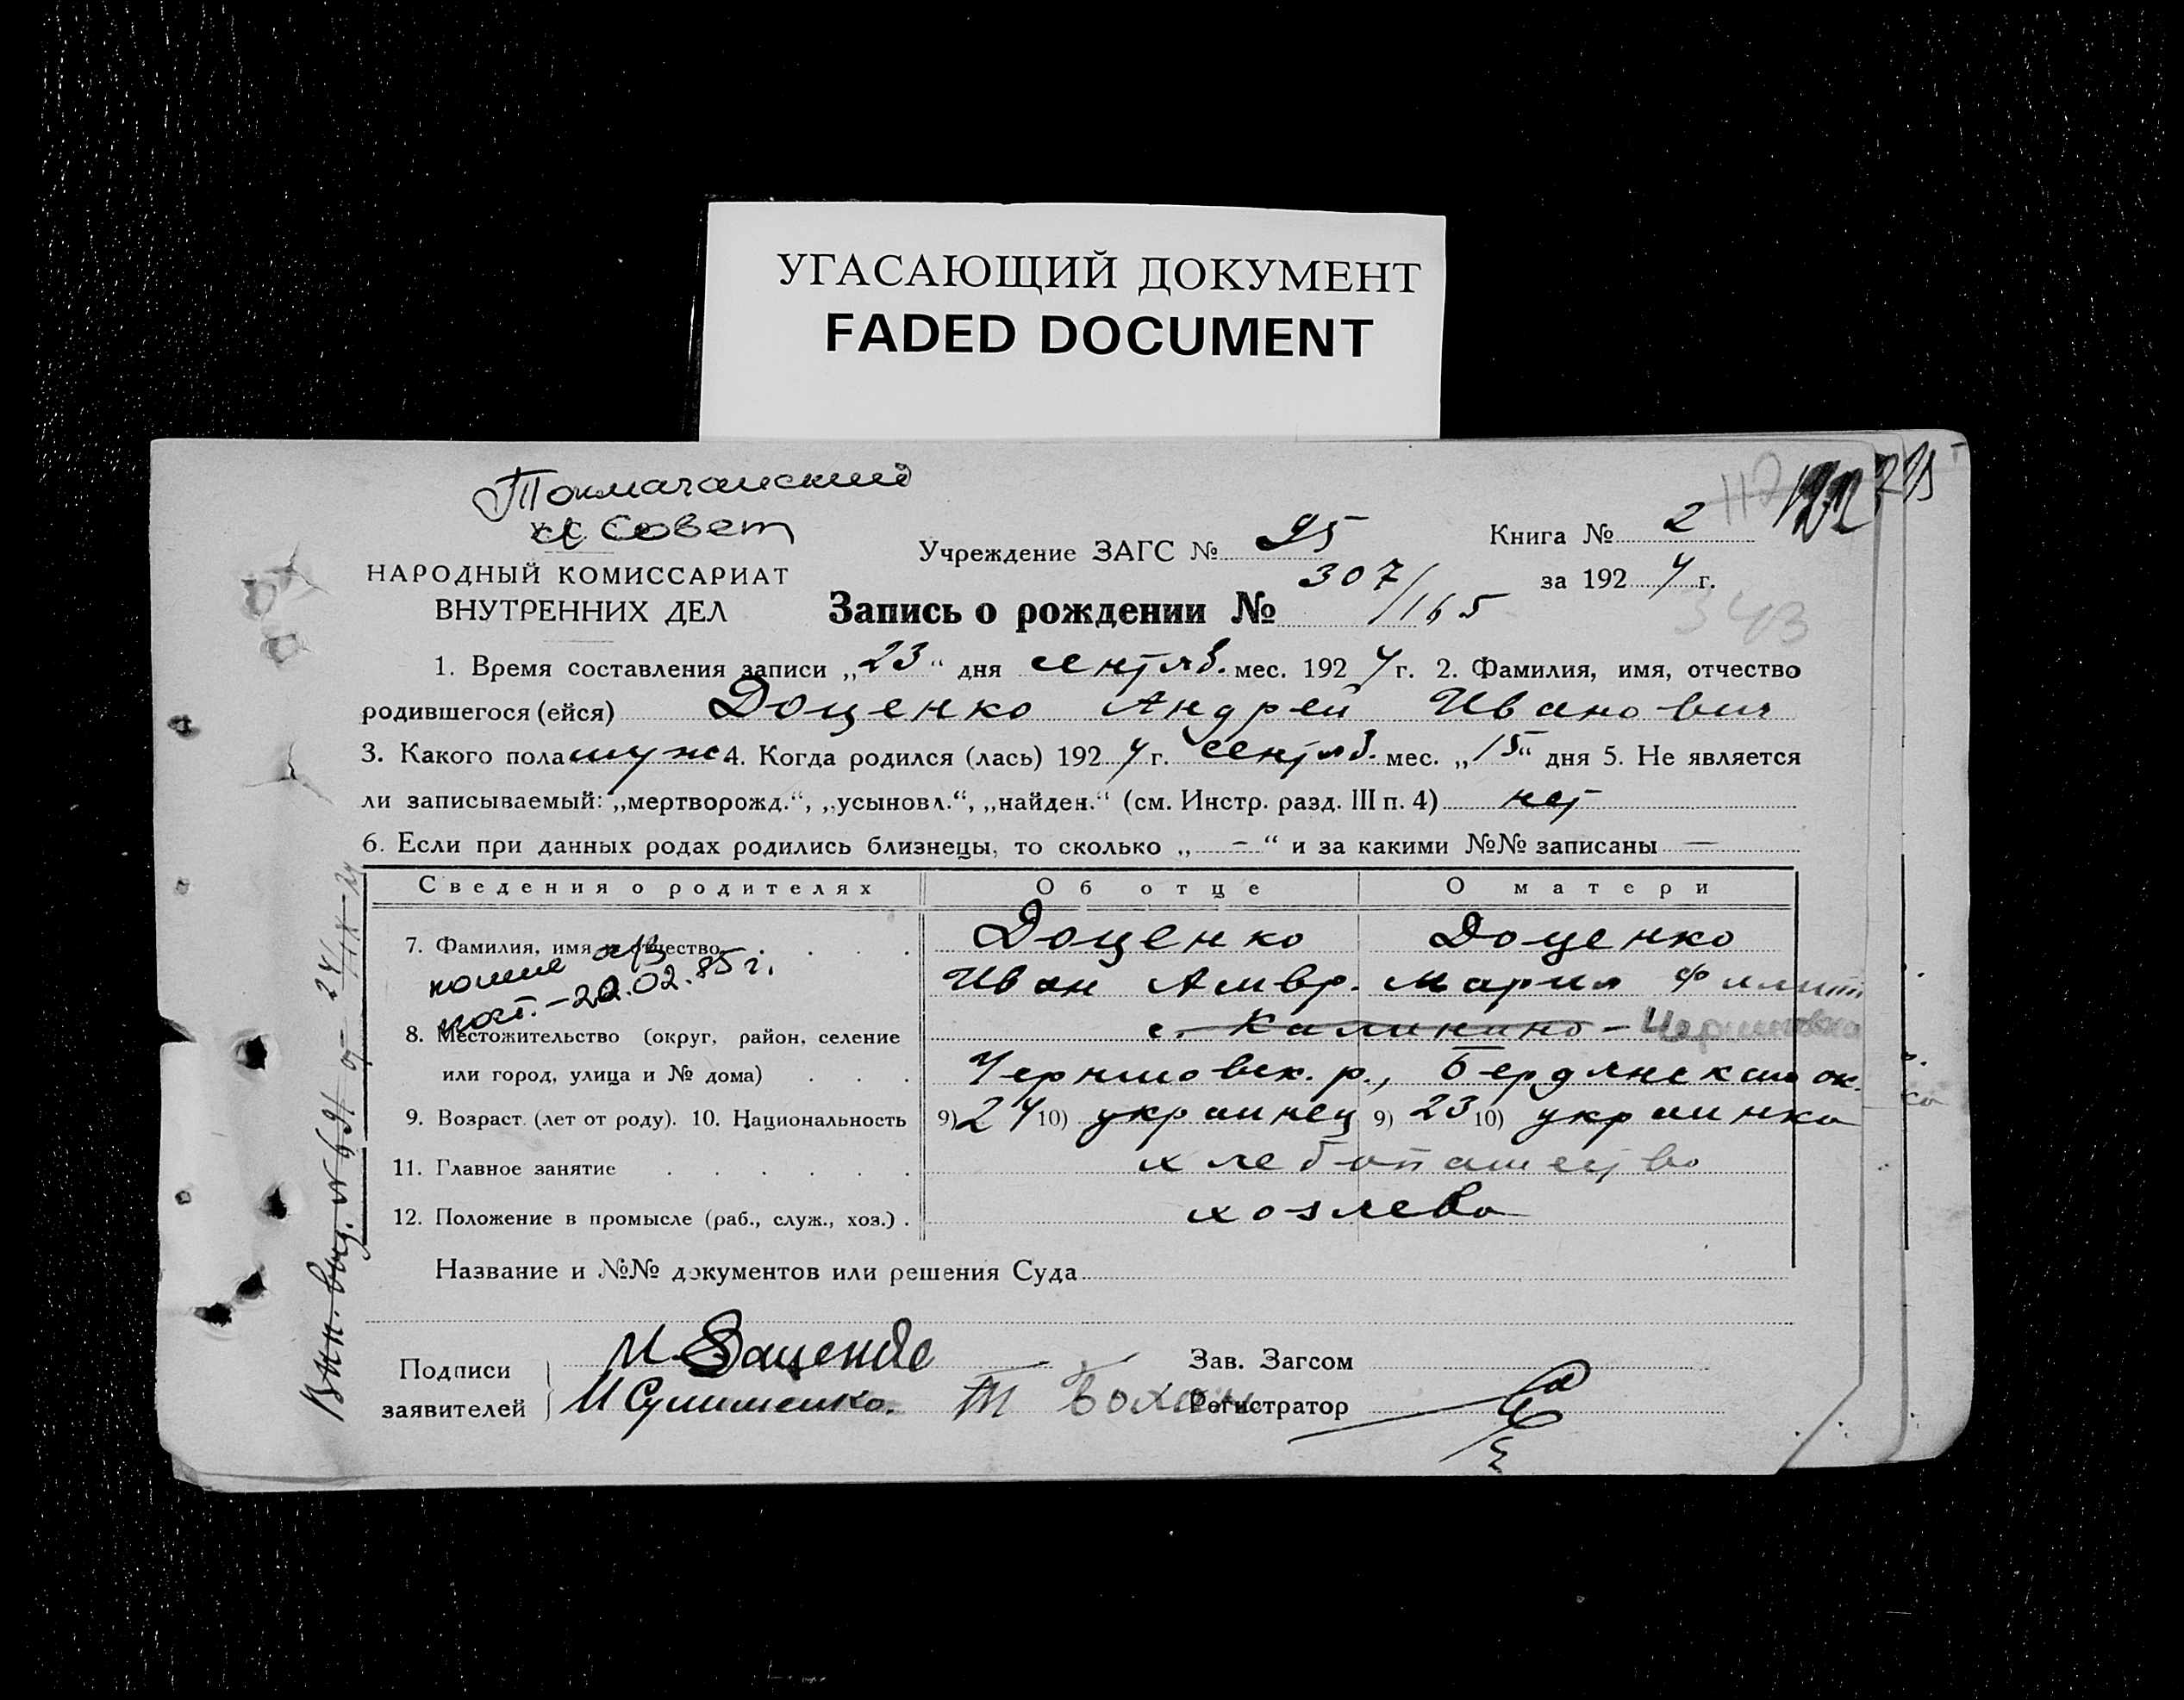 УГАСАЮЩИЙ ДОКУМЕНТ
FADED DOCUMENT
Токмачанский
совет
НАРОДНЫЙ КОМИССАРИАТ
ВНУТРЕННИХ ДЕЛ
Учреждение ЗАГС № 95
Книга № 2
за 1924 г.
Запись о рождении № 307/165
343
1. Время составления записи „23“ дня сентяб. мес. 1924 г. 2. Фамилия, имя, отчество
родившегося (ейся) Доценко Андрей Иванович
3. Какого пола муж 4. Когда родился (лась) 1924 г. сентяб. мес. „15“ дня 5. Не является
ли записываемый: „мертворожд.“, „усыновл.“, „найден.“ (см. Инстр. разд. III п. 4) нет
6. Если при данных родах родились близнецы, то сколько „ - “ и за какими №№ записаны —
Сведения о родителях Об отце О матери
7. Фамилия, имя и отчество . . . . Доценко Доценко
Иван Амвр. Мария Филип
20.02.85 г.
с. Калинино -
8. Местожительство (округ, район, селение
или город, улица и № дома) . . . Черниговск. р., Бердянского ок.
9. Возраст (лет от роду). 10. Национальность 9) 24 10) украинец 9) 23 10) украинка
11. Главное занятие . . . . . . хлебопашество
12. Положение в промысле (раб., служ., хоз.) . хозяева
Название и №№ документов или решения Суда
Подписи
заявителей
И. Доценко
Зав. Загсом
Регистратор